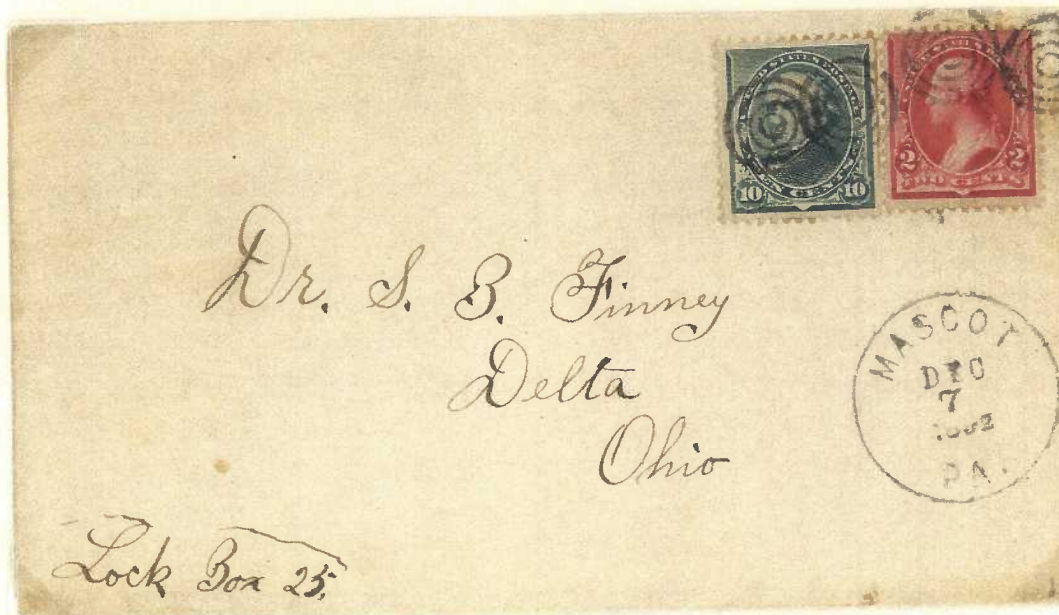 UNITED STATES POSTAGE
TEN CENTS
10 10
2 2
TWO CENTS
Dr. S. B. Finney
Delta
Ohio
MASCOT
DEC
7
PA.
Lock Box 25.